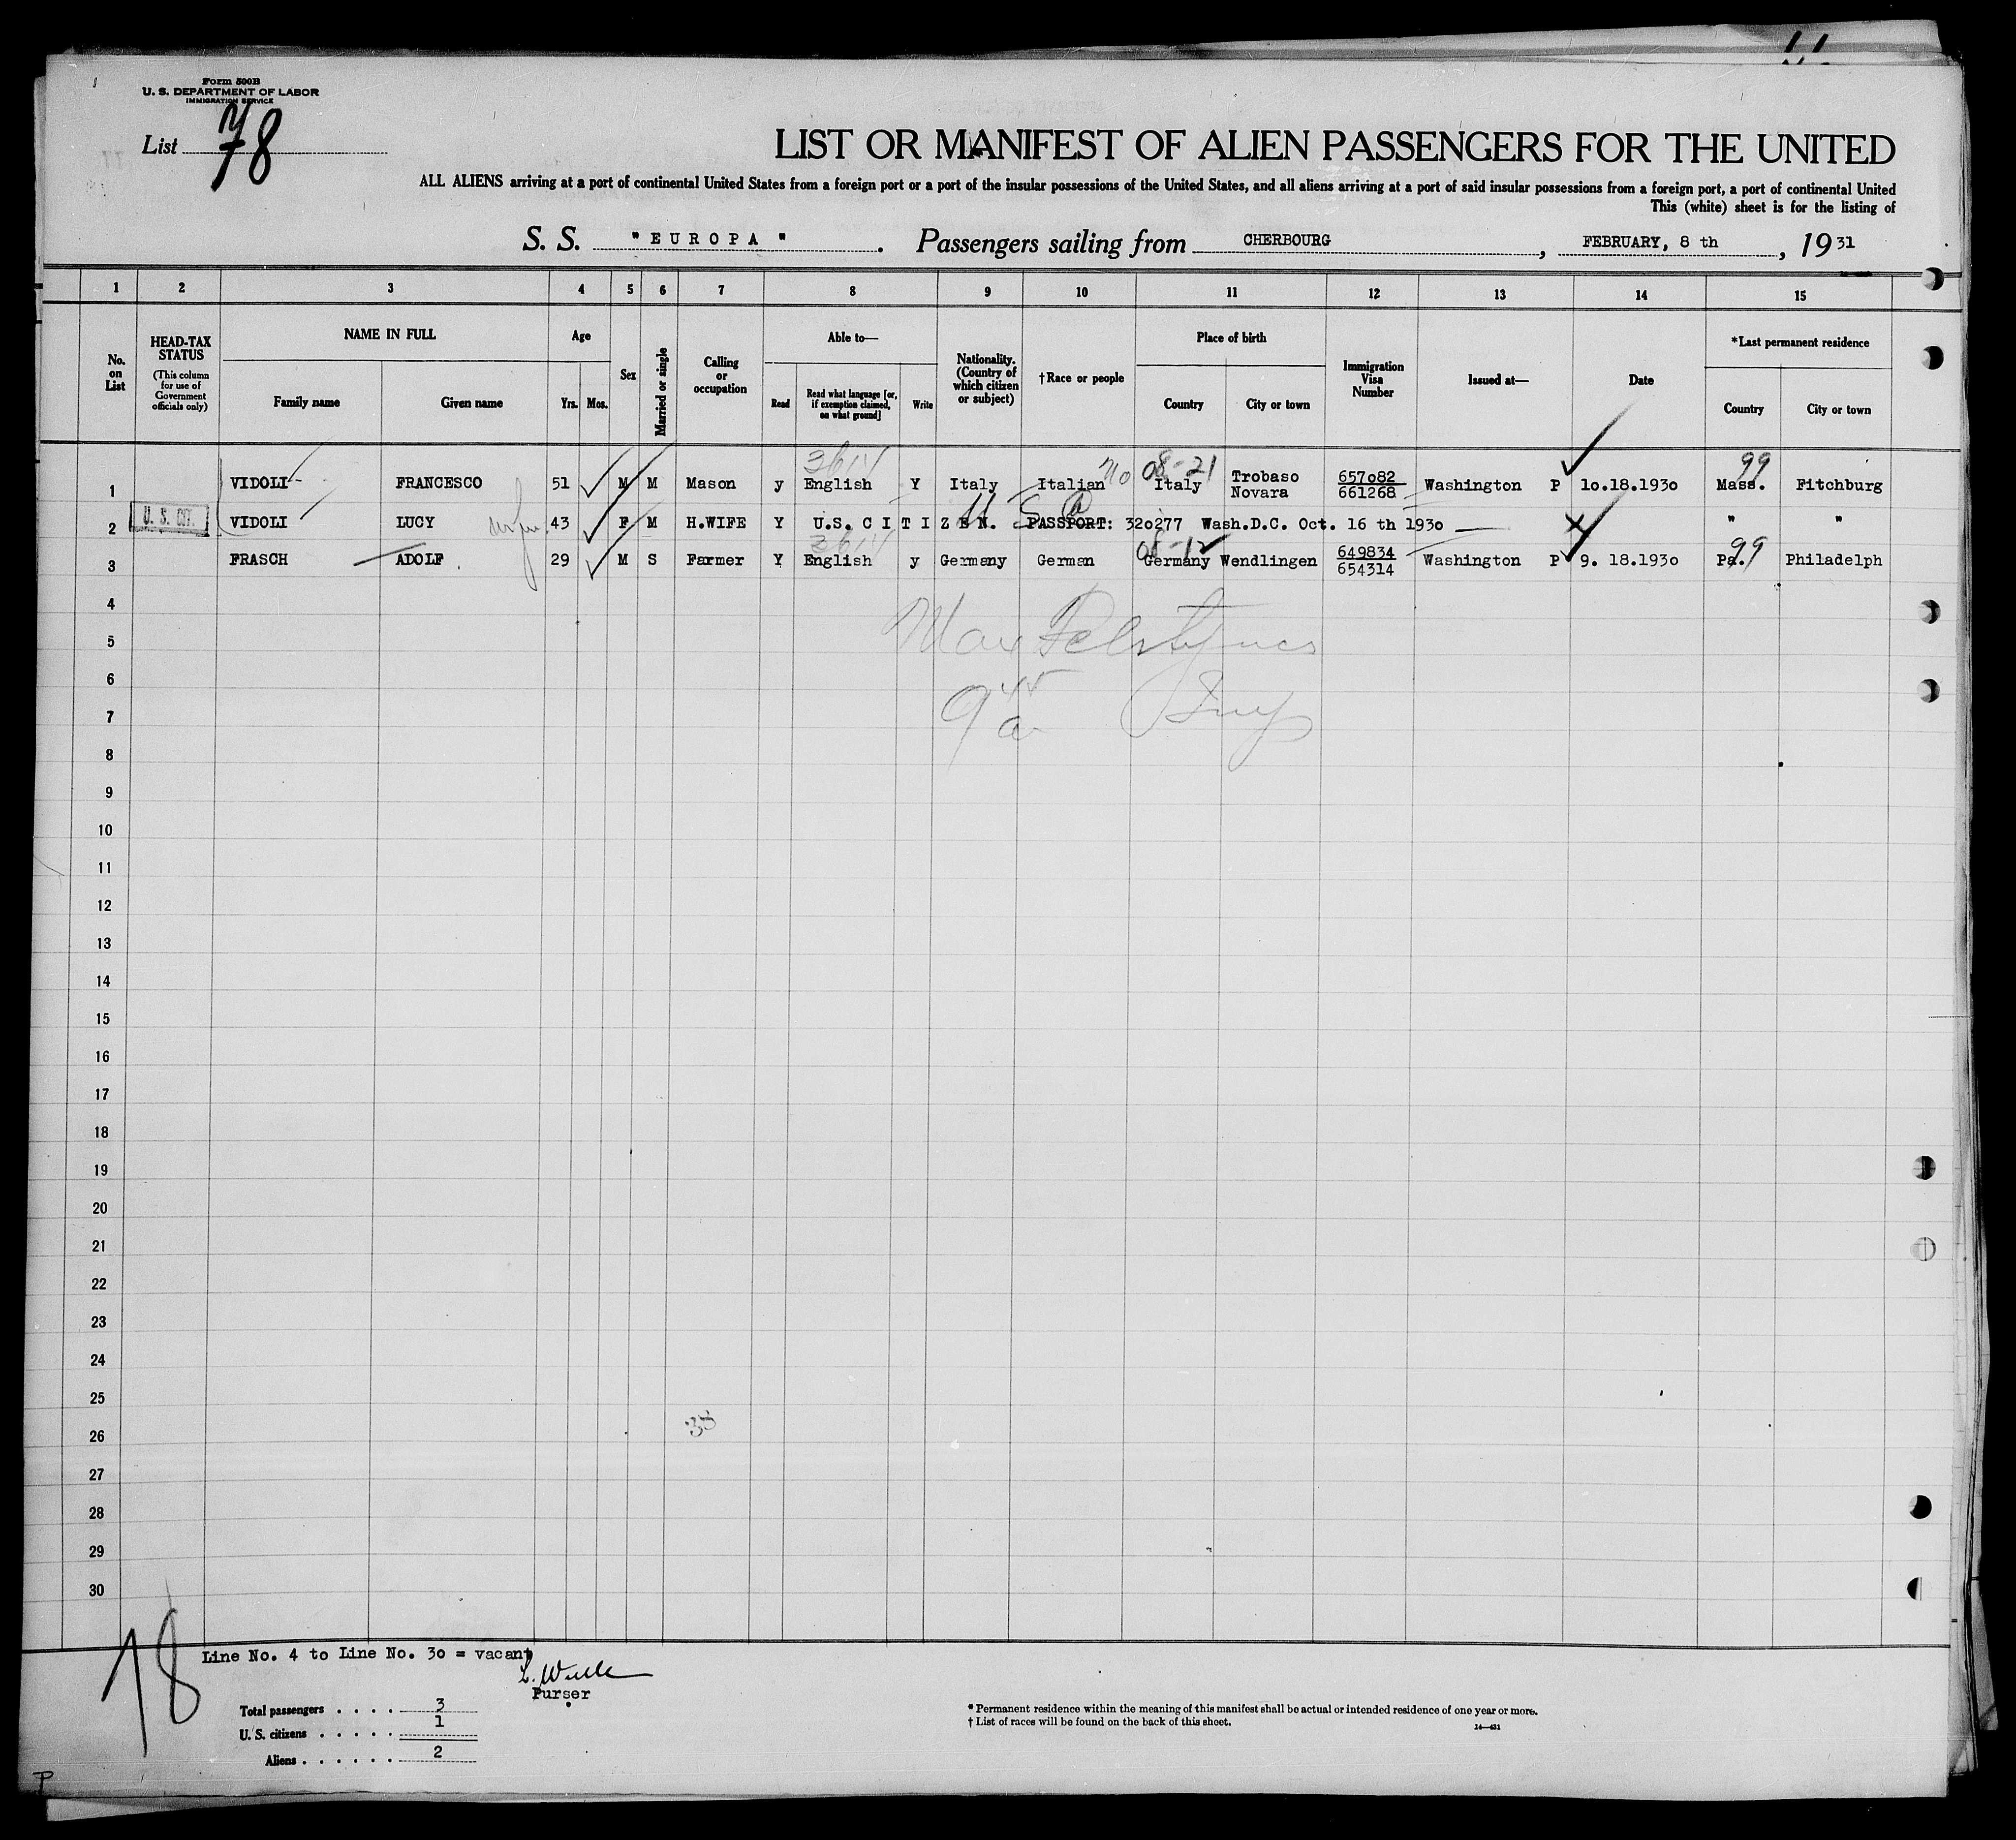 Form 500B
U. S. DEPARTMENT OF LABOR
IMMIGRATION SERVICE
List 78
LIST OR MANIFEST OF ALIEN PASSENGERS FOR THE UNITED
ALL ALIENS arriving at a port of continental United States from a foreign port or a port of the insular possessions of the United States, and all aliens arriving at a port of said insular possessions from a foreign port, a port of continental United
This (white) sheet is for the listing of
S. S. "EUROPA". Passengers sailing from CHERBOURG, FEBRUARY, 8 th, 1931
1 2 3 4 5 6 7 8 9 10 11 12 13 14 15
No. on List
HEAD-TAX STATUS (This column for use of Government officials only)
NAME IN FULL
Family name Given name
Age
Yrs. Mos.
Sex
Married or single
Calling or occupation
Able to—
Read Read what language [or, if exemption claimed, on what ground] Write
Nationality. (Country of which citizen or subject)
†Race or people
Place of birth
Country City or town
Immigration Visa Number
Issued at—
Date
*Last permanent residence
Country City or town
08-21 99
1 VIDOLI FRANCESCO 51 M M Mason y English Y Italy Italian Italy Trobaso Novara 657082 661268 Washington P 10.18.1930 Mass. Fitchburg
U S @
2 U. S. CIT. VIDOLI LUCY 43 F M H.WIFE Y U.S. CITIZEN. PASSPORT: 320277 Wash.D.C. Oct. 16 th 1930 " "
08-12 99
3 FRASCH ADOLF 29 M S Farmer Y English y Germany German Germany Wendlingen 649834 654314 Washington P 9. 18.1930 Pa. Philadelph
4
5 Max
6
7
8
9
10
11
12
13
14
15
16
17
18
19
20
21
22
23
24
25
26
27
28
29
30
78
Line No. 4 to Line No. 30 = vacant
Purser
Total passengers . . . . 3
U. S. citizens . . . . . 1
Aliens . . . . . . 2
* Permanent residence within the meaning of this manifest shall be actual or intended residence of one year or more.
† List of races will be found on the back of this sheet.
14—431
P